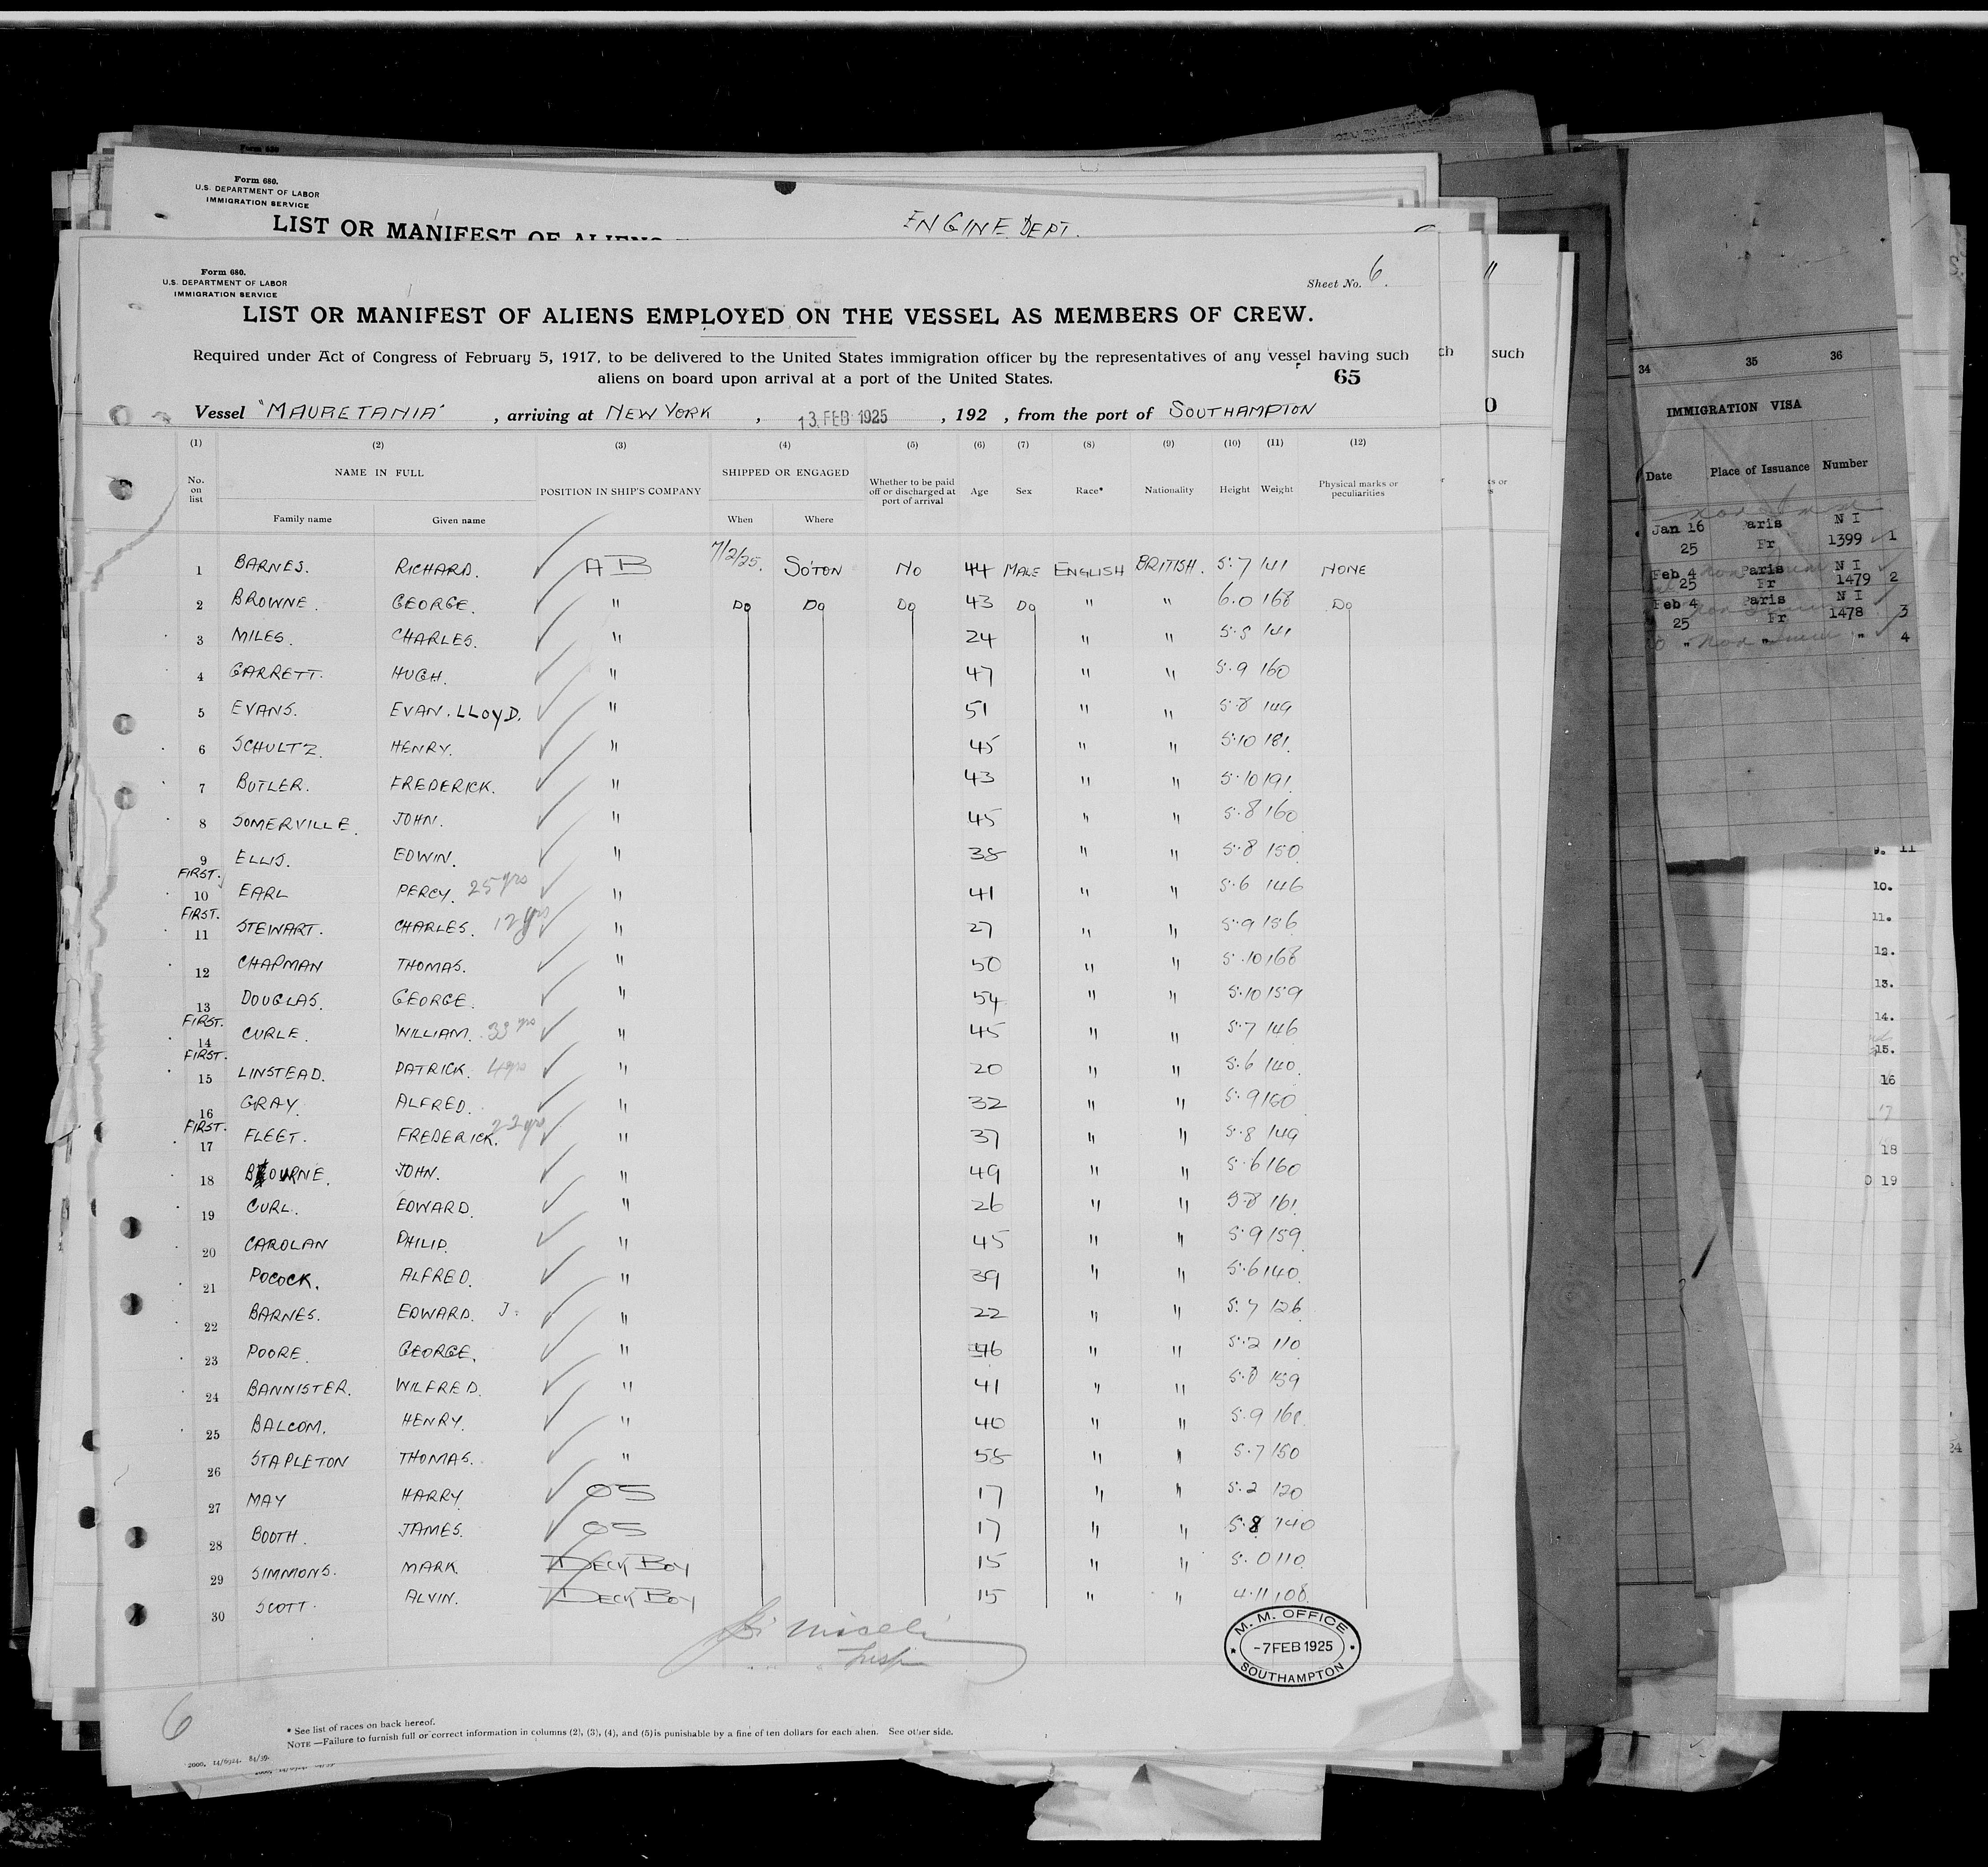 Form 680.
U.S. DEPARTMENT OF LABOR
IMMIGRATION SERVICE
LIST OR MANIFEST OF ALIENS
ENGINE DEPT.
Form 680.
U.S. DEPARTMENT OF LABOR
IMMIGRATION SERVICE
Sheet No. 6.
LIST OR MANIFEST OF ALIENS EMPLOYED ON THE VESSEL AS MEMBERS OF CREW.
Required under Act of Congress of February 5, 1917, to be delivered to the United States immigration officer by the representatives of any vessel having such
aliens on board upon arrival at a port of the United States.
65
Vessel "MAURETANIA", arriving at NEW YORK, 13 FEB 1925, 192 , from the port of SOUTHAMPTON
(1) (2) (3) (4) (5) (6) (7) (8) (9) (10) (11) (12)
No. on list NAME IN FULL POSITION IN SHIP'S COMPANY SHIPPED OR ENGAGED Whether to be paid off or discharged at port of arrival Age Sex Race* Nationality Height Weight Physical marks or peculiarities
Family name Given name When Where
1 BARNES. RICHARD. AB 7/2/25. SO'TON NO 44 MALE ENGLISH BRITISH. 5.7 141 NONE
2 BROWNE. GEORGE. " DO DO DO 43 DO " " 6.0 168 DO
3 MILES. CHARLES. " 24 " " 5.5 141
4 GARRETT. HUGH. " 47 " " 5.9 160
5 EVANS. EVAN. LLOYD. " 51 " " 5.8 149
6 SCHULTZ HENRY. " 45 " " 5.10 181.
7 BUTLER. FREDERICK. " 43 " " 5.10 191.
8 SOMERVILLE. JOHN. " 45 " " 5.8 160
9 ELLIS. EDWIN. " 38 " " 5.8 150
FIRST. 10 EARL PERCY. 25 yrs " 41 " " 5.6 146
FIRST. 11 STEWART. CHARLES. 12 yrs " 27 " " 5.9 156
12 CHAPMAN THOMAS. " 50 " " 5.10 168
13 DOUGLAS. GEORGE. " 54 " " 5.10 159
FIRST. 14 CURLE. WILLIAM. 33 yrs " 45 " " 5.7 146
FIRST. 15 LINSTEAD. PATRICK. 4 yrs " 20 " " 5.6 140.
16 GRAY. ALFRED. " 32 " " 5.9 160
FIRST. 17 FLEET. FREDERICK. 22 yrs " 37 " " 5.8 149
18 BOURNE. JOHN. " 49 " " 5.6 160
19 CURL. EDWARD. " 26 " " 5.8 161.
20 CAROLAN PHILIP. " 45 " " 5.9 159.
21 POCOCK. ALFRED. " 39 " " 5.6 140.
22 BARNES. EDWARD. J. " 22 " " 5.7 126
23 POORE. GEORGE. " 46 " " 5.2 110
24 BANNISTER. WILFRED. " 41 " " 5.8 159
25 BALCOM. HENRY. " 40 " " 5.9
26 STAPLETON THOMAS. " 58 " " 5.7 150
27 MAY HARRY OS 17 " " 5.2 120
28 BOOTH. JAMES. OS 17 " " 5.8 140
29 SIMMONS. MARK. DECK BOY 15 " " 5.0 110.
30 SCOTT. ALVIN. DECK BOY 15 " " 4.11 108.
Insp
M. M. OFFICE
-7 FEB 1925
SOUTHAMPTON
6
* See list of races on back hereof.
NOTE —Failure to furnish full or correct information in columns (2), (3), (4), and (5) is punishable by a fine of ten dollars for each alien. See other side.
2000. 14/6924. 84/39.
ch such
34 35 36
IMMIGRATION VISA
Date Place of Issuance Number
Jan 16 Paris N I
25 Fr 1399 1
Feb 4 Paris N I
25 Fr 1479 2
Feb 4 Paris N I
25 Fr 1478 3
" " " 4
9. 11
10.
11.
12.
13.
14.
15.
16
17
18
19